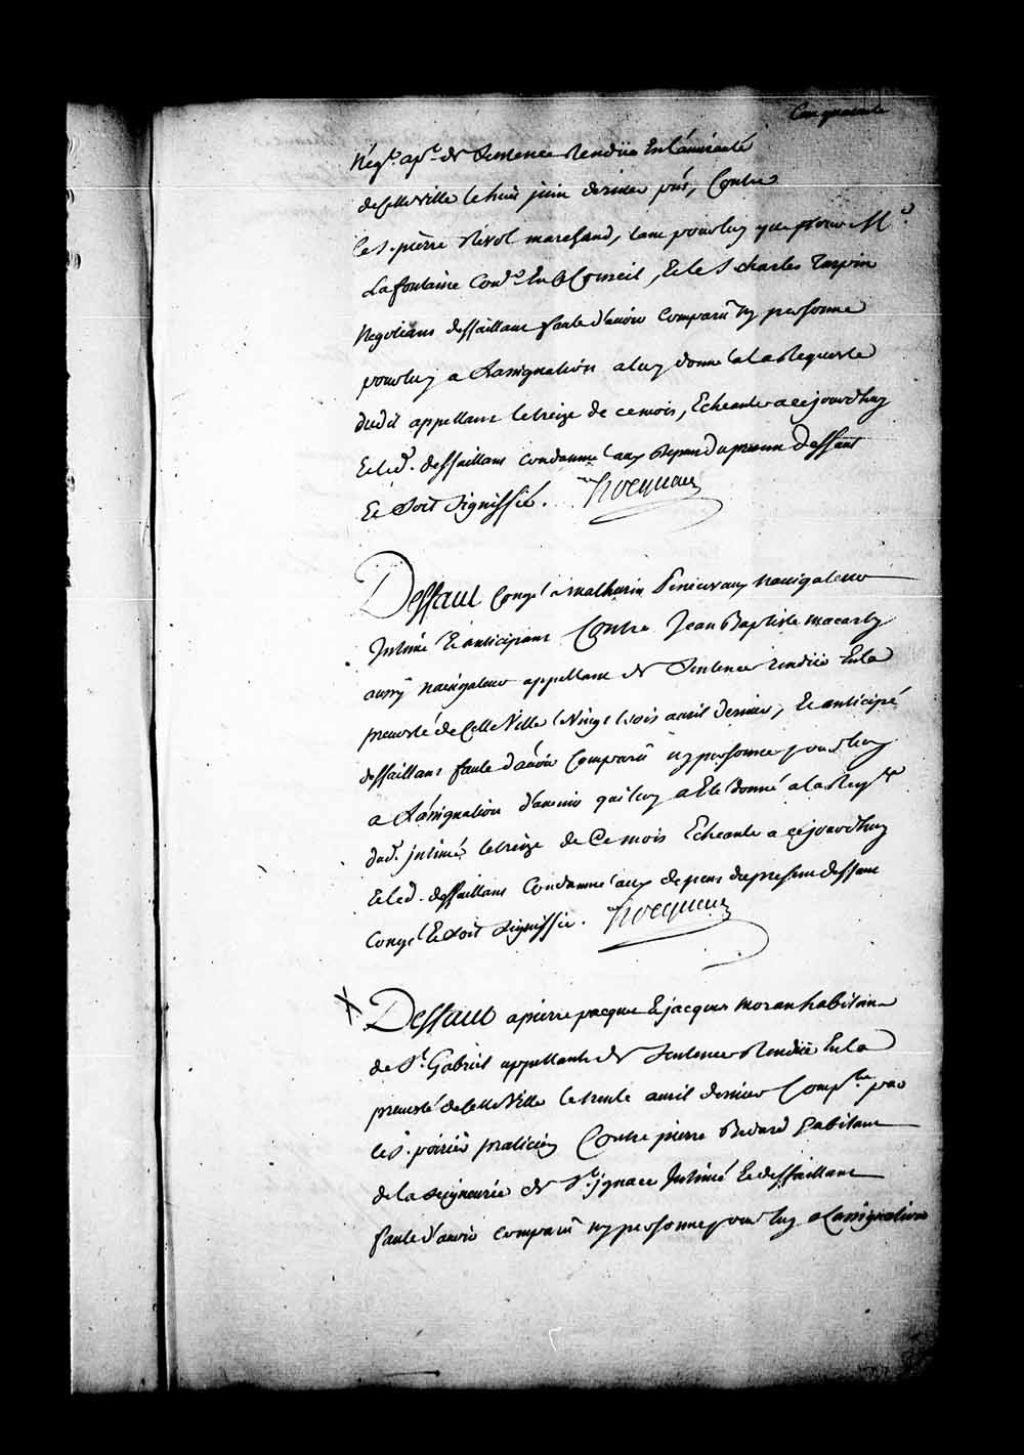 Cinquante
Neg.t ap.t de Sentence Rendüe En l'amirauté
de Cette Ville le huit juin dernier prés, Contre
le S. pierre Revol marchand, tant pour luy que pour M.e
Lafontaine Con.er En Ce Conseil, Et le S charles Turpin
Negotians deffaillans faute d'avoir Comparû ny personne
pour luy a L'assignation a luy donné a la Requeste
dudit appellant le treize de ce mois, Echeante a cejourd'huy
Et led. deffaillant condamné aux depens du present deffaut
Et Soit Signiffié. hocquart
Deffaut Congé a mathurin navigateur
Intimé Et anticipant Contre Jean Baptiste macarty
aussy navigateur appellant de Sentence rendüe En la
prevosté de Cette Ville le Vingt trois avril dernier, Et anticipé
deffaillant faute d'avoir Comparû ny personne pour luy
a L'assignation qui luy a Eté donné a la Req.te
dud. jntimé le treize de Ce mois Echeante a cejourd'huy
Et led. deffaillant Condamné aux depens du present deffaut
Congé Et Soit Signiffié. hocquart
X Deffaut a pierre pacquet & jacques moran habitans
de S.t Gabriel appellants de Sentence Rendüe En la
prevosté de Cette Ville le trente avril dernier Comp.te par
le S. poirier praticien Contre pierre Bedard habitant
de la Seigneurie de S.t jgnace Intimé Et deffaillant
faute d'avoir comparû ny personne pour luy a L'assignation